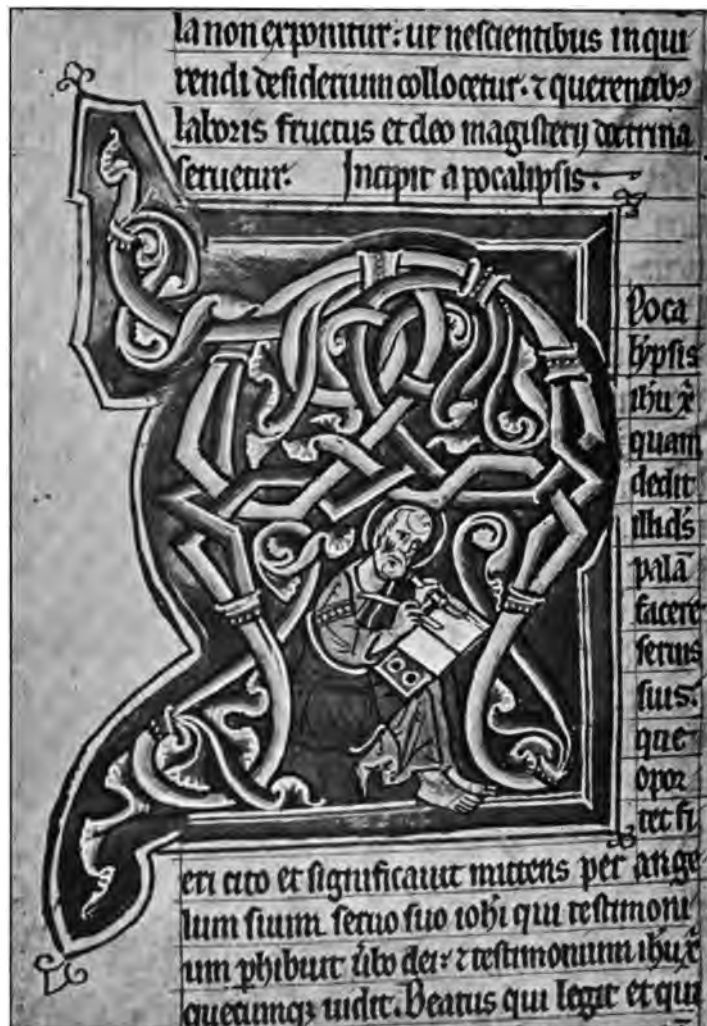 la non exponitur: ut nescientibus inqui
rendi desiderium collocetur. ⁊ querentibꝰ
laboris fructus et deo magisterij doctrina
seruetur. Incipit apocalipsis.
Poca
lypsis
ihu xp̄i
quam
dedit
illi ds̄
palā
facere
seruis
suis.
que
opor
tet fi
eri cito et significauit mittens per ange
lum suum seruo suo iohi qui testimoni
um phibuit ūbo dei. ⁊ testimonium ihu x̄
quecumqꝫ uidit. Beatus qui legit et qui